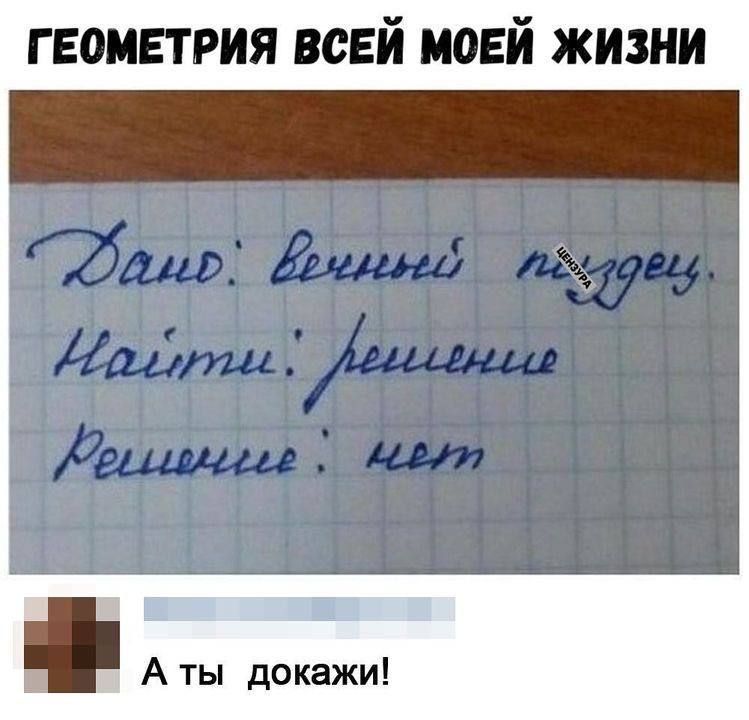 ГЕОМЕТРИЯ ВСЕЙ МОЕЙ ЖИЗНИ
Дано: Вечный пиздец.
ЦЕНЗУРА
Найти: решение
Решение: нет
А ты докажи!